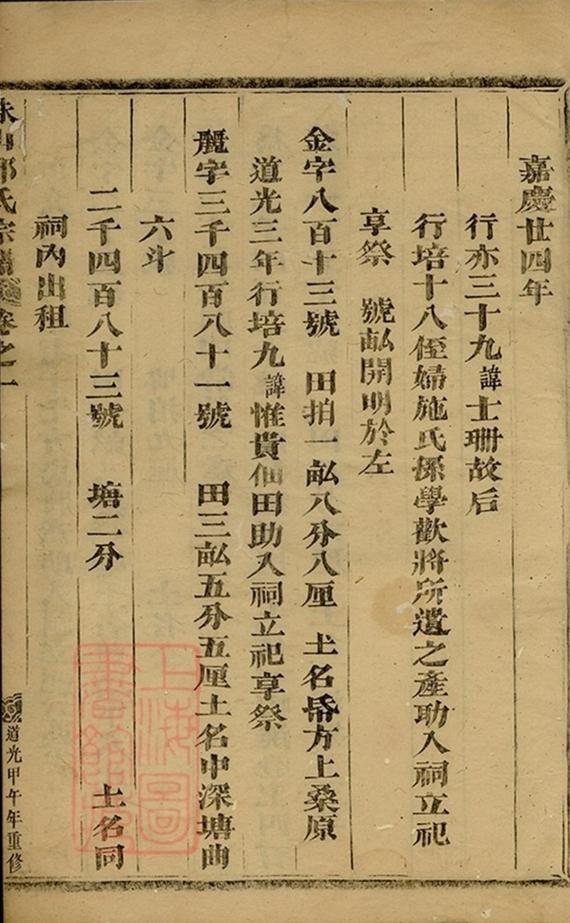 嘉慶廿四年
行亦三十九諱士珊故后
行培十八侄婦施氏孫學歡將所遺之產助入祠立祀
享祭 號畝開明於左
金字八百十三號 田拍一畝八分八厘 土名昏方上桑原
道光三年行培九諱惟貴佃田助入祠立祀享祭
麗字三千四百八十一號 田三畝五分五厘土名中深塘曲
六斗
二千四百八十三號 塘二分 土名同
祠內出租
氏宗譜 卷之一
道光甲午年重修
上海圖書館藏